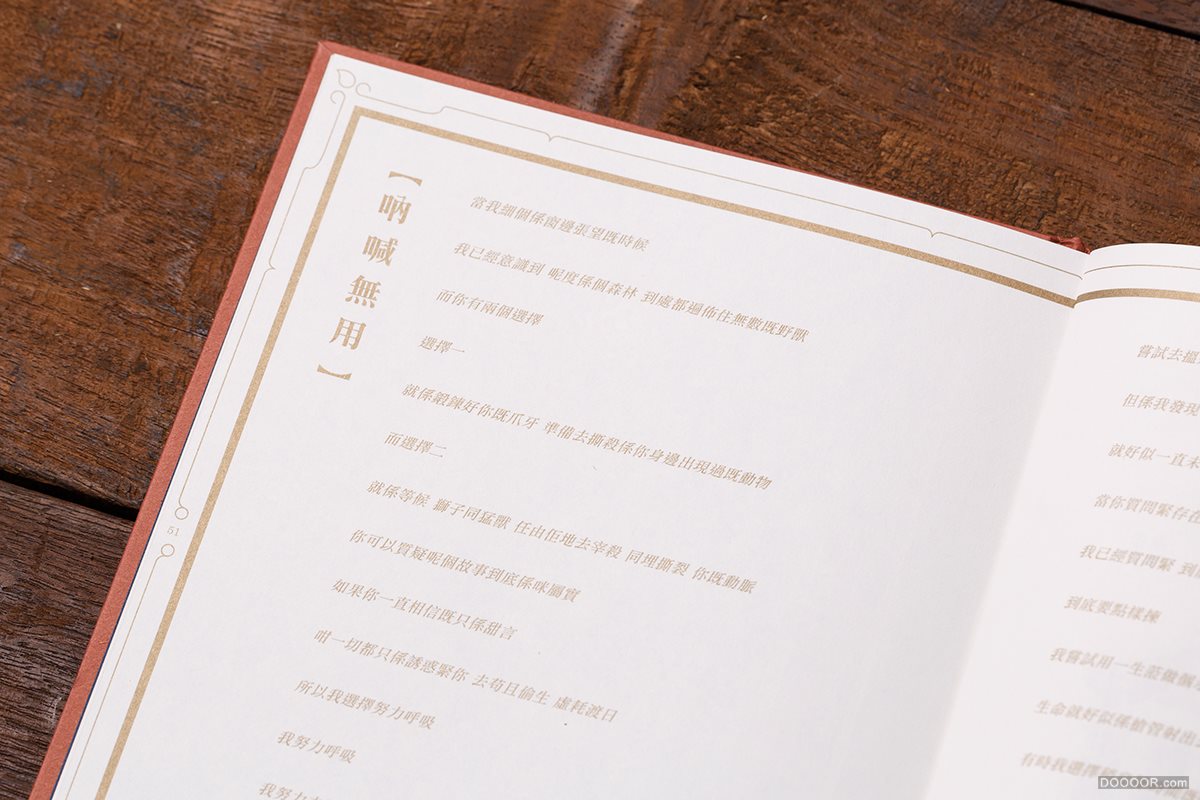 【吶喊無用】
當我細個係窗邊張望既時候
我已經意識到 呢度係個森林 到處都遍佈住無數既野獸
而你有兩個選擇
選擇一
就係鍛鍊好你既爪牙 準備去撕殺係你身邊出現過既動物
而選擇二
就係等候 獅子同猛獸 任由佢地去宰殺 同埋撕裂 你既動脈
你可以質疑呢個故事到底係咪屬實
如果你一直相信既只係甜言
咁一切都只係誘惑緊你 去苟且偷生 虛耗渡日
所以我選擇努力呼吸
我努力呼吸
我努力
51
嘗試去搵
但係我發現
就好似一直未
當你質問緊存在
我已經質問緊 到
到底要點樣揀
我嘗試用一生莊做個
生命就好似係槍管射出
有時我選擇
DOOOOR.com